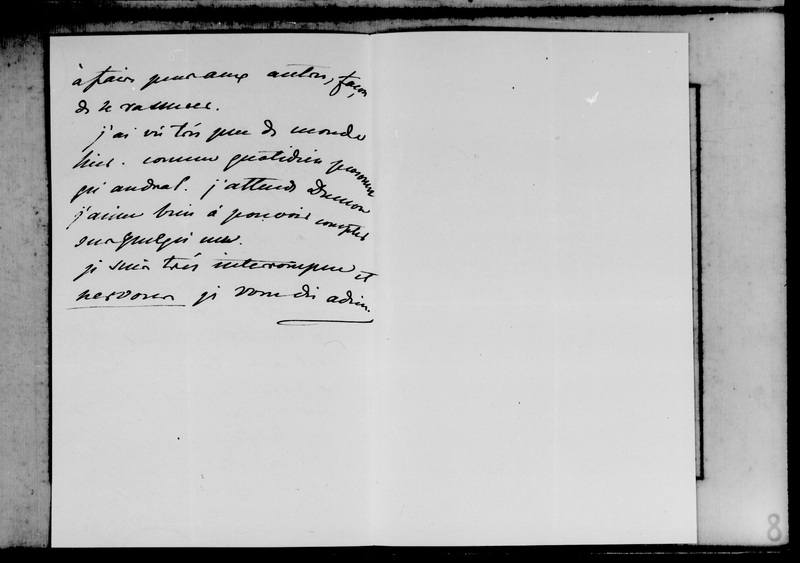 à faire peur aux autres, façon
de se rassurer.
j'ai vu très peu de monde
hier. comme quotidien personne
qui andral. j'attends Dumon
j'aime bien à pouvoir compter
sur quelqu'un.
je suis très interrompue et
nervous je vous dis adieu.
8